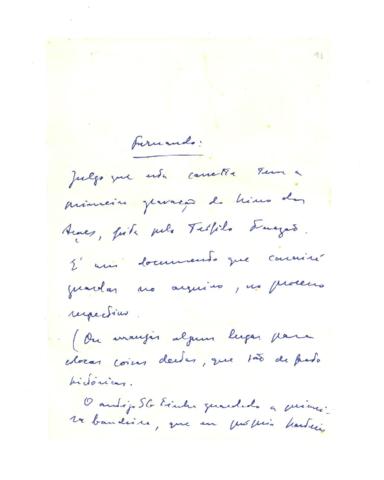 Fernando:
Julgo que esta cassette tem a
primeira gravação do hino dos
Açores, feita pelo Teófilo Frazão.
É um documento que convirá
guardar no arquivo, no processo
respectivo.
(Ou arranjar algum lugar para
colocar coisas destas, que são de facto
históricas.
O antigo SG tinha guardado a primei-
ra bandeira, que eu próprio